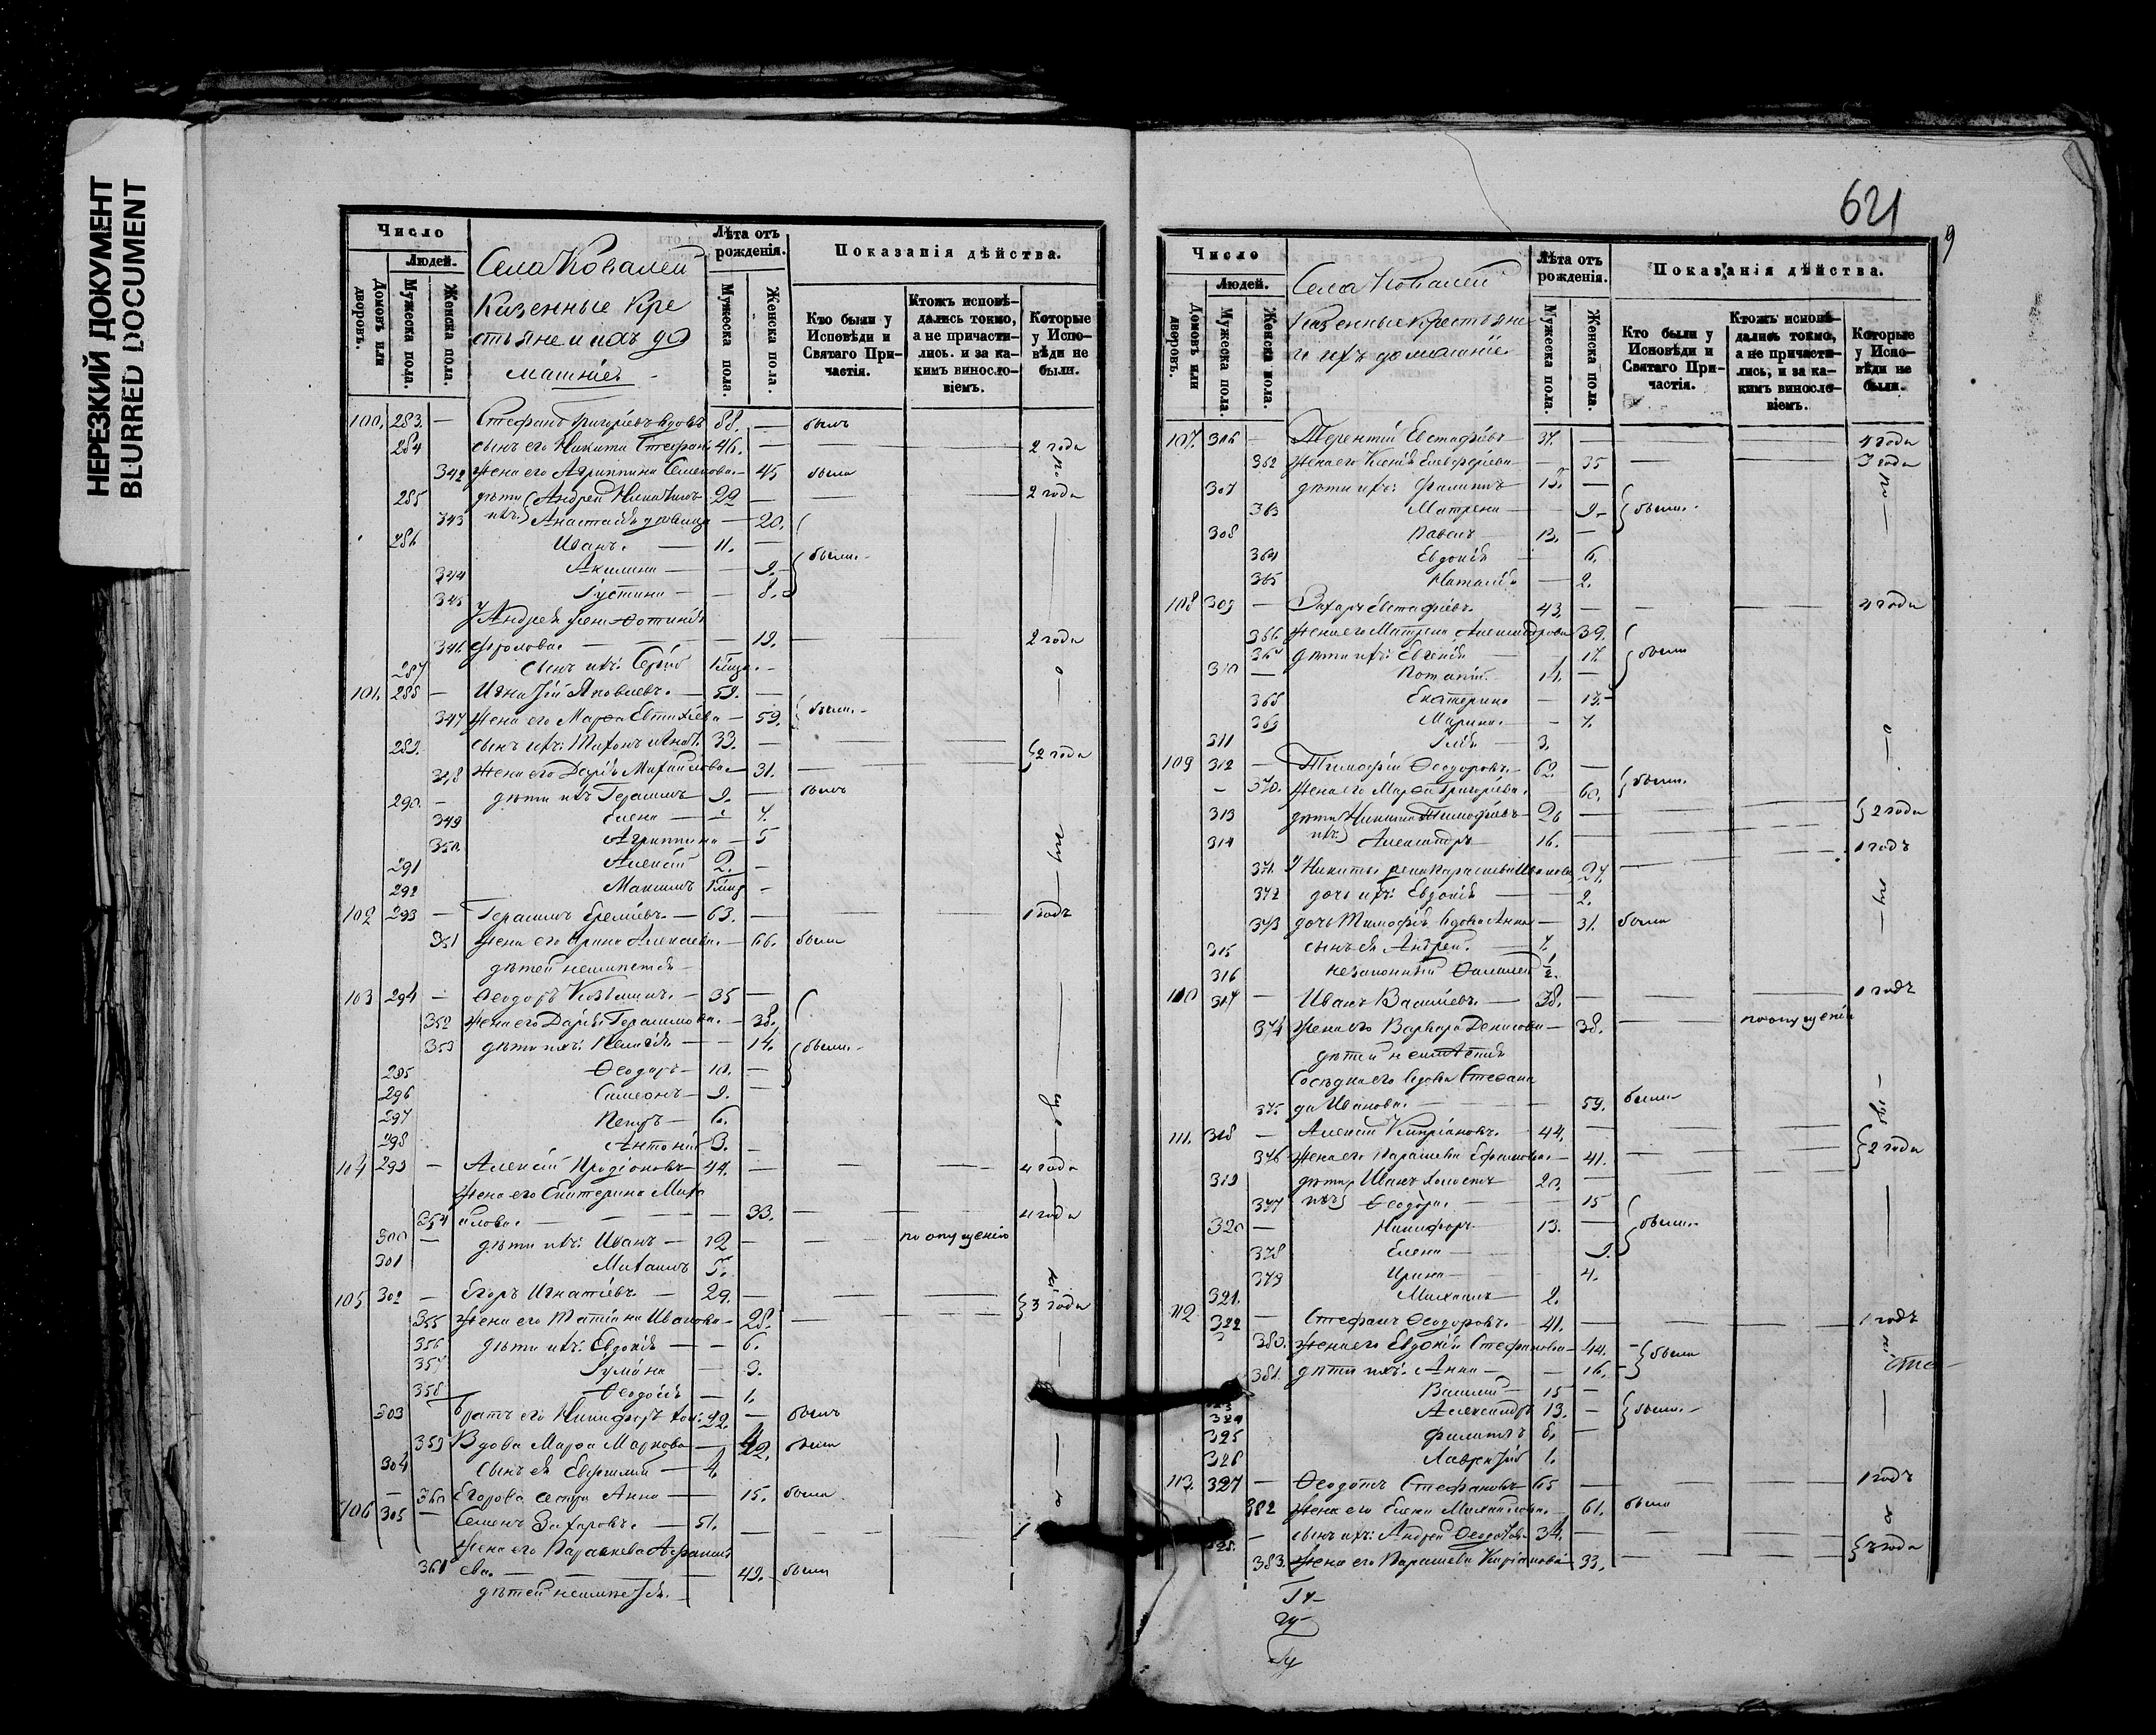 НЕРЕЗКИЙ ДОКУМЕНТ
BLURRED DOCUMENT
Число
Людей.
Домовъ или дворовъ.
Мужеска пола.
Женска пола.
Села Ковалей
Казенные Кре
стьяне и ихъ до
машніе
Лѣта отъ рожденія.
Мужеска пола
Женска пола.
Показанія дѣйства.
Кто были у Исповѣди и Святаго Причастія.
Ктожъ исповѣдались токмо, а не причастились. и за какимъ винословіемъ.
Которые у Исповѣди не были.
100. 283. — Стефанъ Григоріевъ вдовъ 88. — былъ
284 сынъ его Никита Стефан. 46. — 2 года
342 жена его Агриппина Семенова — 45 была
285 дѣти ихъ Андрей Никитинъ 22 — 2 года
343 Анастасія дѣвица — 20.
286 Иванъ. — 11. —
344 Акилина — 9. были
345 Іустина — 8.
у Андрея жена Фотинія
346 Фролова — 19. — 2 года
287 сынъ ихъ: Сергій
101. 288 — Игнатій Яковлевъ. — 59. —
347 жена его Марфа Евтихіева — 59. были
289. сынъ ихъ: Тихонъ 33. — 2 года
348 жена его Дарія Михайлова — 31.
290. — дѣти ихъ Герасимъ 9. — былъ
349 Елена — 7.
350. Агриппина — 5
291 Алексій 2. —
292 Максимъ
102 293 — Герасимъ Еремѣевъ. — 63. — 1 годъ
351 жена его Ирина Алексѣева. — 66. была
дѣтей неимѣетъ
103 294 — Ѳеодоръ Козьминъ. — 35 —
352 жена его Дарія Герасимова. — 38.
353 дѣти ихъ: Пелагія — 14. были.
295 Ѳеодоръ — 10. —
296 Симеонъ — 9. —
297 Петръ — 6.
298 Антоній 3. —
104 299 — Алексій Иродіоновъ 44. — 4 года
жена его Екатерина Миха
354 йлова. — 33. — 4 года
300 — дѣти ихъ: Иванъ — 12 — по опущенію
301 Михаилъ 5.
105 302 — Егоръ Игнатіевъ. — 29. — 3 года
355 жена его Татіана Иванова — 28.
356 дѣти ихъ: Евдокія — 6.
357 Іуліана — 3.
358 Ѳеодосія — 1.
303 Братъ его Никифоръ хол. 22. — былъ
359 Вдова Марфа Маркова — была
304 сынъ ея — 4.
360 Егорова сестра Анна — 15. была
106 305 — Семенъ Захаровъ. — 51. — 1
жена его Параскева
361 ева. — 49. были
дѣтей неимѣетъ.
621
9
Число
Людей.
Домовъ или дворовъ.
Мужеска пола.
Женска пола.
Села Ковалей
Казенные Крестьяне
и ихъ домашніе
Лѣта отъ рожденія.
Мужеска пола.
Женска пола.
Показанія дѣйства.
Кто были у Исповѣди и Святаго Причастія.
Ктожъ исповѣдались токмо, а не причастились, и за какимъ винословіемъ.
Которые у Исповѣди не были.
107. 306 — Терентій Евстафіевъ 37. — 4 года
362 жена его Ксенія Елевферіева — 35 — 3 года
307 дѣти ихъ: Филиппъ 15. —
363 Матрена — 9. были.
308 Павелъ 13. —
364 Евдокія 6.
365 Наталія — 2.
108 309 — Захаръ Евстафіевъ 43. — 4 года
366. жена его Матрена Александрова 39.
367 дѣти ихъ: Евгенія — 17. были
310 — Потапій. 14. —
368 Екатерина — 13.
369 Марина. — 7.
311 Илія — 3.
109 312 — Тимофій Ѳеодоровъ. — 62. —
370. жена его Марфа Григоріева. 60. были.
313 дѣти ихъ Никита Тимофіевъ 26 — 2 года
314 Александръ 16. — 1 годъ
371. у Никиты жена Параскева Иванова 24.
372 дочь ихъ: Евдокія — 2.
373 дочь Тимофія вдова Анна — 31. была
315 сынъ ея Андрей. — 7.
316 незаконный
110 317 — Иванъ Василіевъ. — 38. — 1 годъ
374 жена его Варвара Денисова — 38. — по опущенію
дѣтей неимѣетъ
Сосѣдка его вдова Стефани
375 да Иванова. — 59. была
111. 318 — Алексій Кипріановъ. 44. —
376 жена его Параскева Ефимова — 41. — 2 года
319 дѣти ихъ Иванъ холостъ 20. —
377 Ѳеодора 15
320 — Никифоръ 13. — были.
378 Елена 9.
379 Ирина — 4.
321. Михаилъ 2.
112 322 — Стефанъ Ѳеодоровъ. 41. — 1 годъ
380. жена его Евдокія Стефанова 44. были
381. дѣти ихъ: Анна — 16.
Василій 15 —
Александръ 13. — были.
324
325 Филиппъ 6.
326 Лаврентій 1.
113. 327 — Ѳеодотъ Стефановъ 65 — 1 годъ
382 жена его Елена Михайлова. 61. была
328. — сынъ ихъ: Андрей Ѳеодотов. 34. — года
383. жена его Параскева Кипріанова 33.